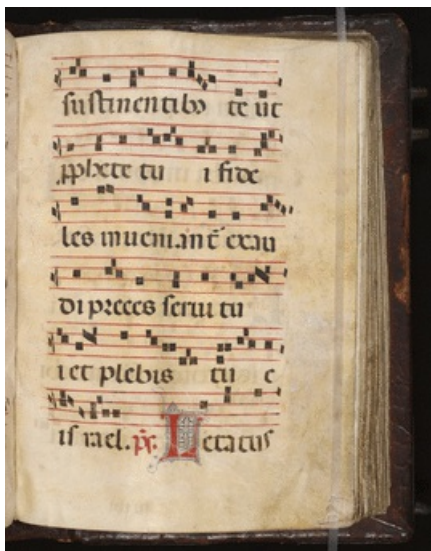 sustinentib9 te ut
ꝓphete tu i fide
les inueniant͛ exau
di preces serui tu
i et plebis tu e
is rael. p̃s. Letatus